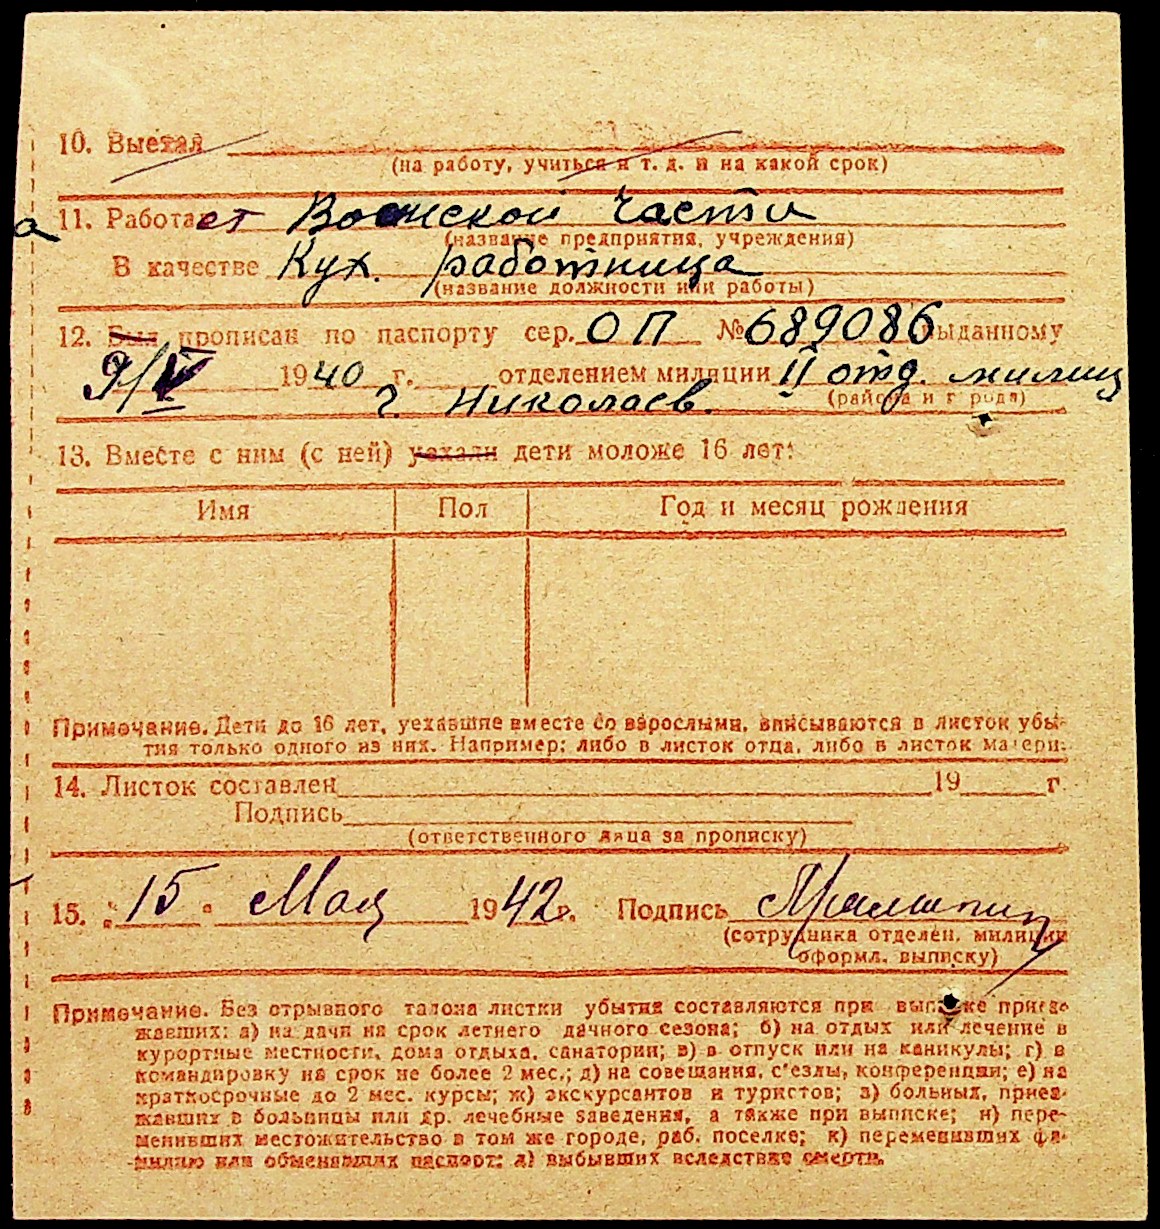 10. Выехал
(на работу, учиться и т. д. и на какой срок)
11. Работает Воинской части
(название предприятия, учреждения)
В качестве Кух. работница
(название должности или работы)
12. Был прописан по паспорту сер. ОП № 689086 выданному
9/V 1940 г. отделением милиции II отд. милиц
г. Николаев.
(района и города)
13. Вместе с ним (с ней) уехали дети моложе 16 лет:
Имя Пол Год и месяц рождения
Примечание. Дети до 16 лет, уехавшие вместе со взрослыми, вписываются в листок убы-
тия только одного из них. Например: либо в листок отца, либо в листок матери.
14. Листок составлен 19 г.
Подпись
(ответственного лица за прописку)
15. „15“ Мая 1942 г. Подпись
(сотрудника отделен. милиции
оформл. выписку)
Примечание. Без отрывного талона листки убытия составляются при выписке приез-
жавших: а) на дачи на срок летнего дачного сезона; б) на отдых или лечение в
курортные местности, дома отдыха, санатории; в) в отпуск или на каникулы; г) в
командировку на срок не более 2 мес.; д) на совещания, с'езды, конференции; е) на
краткосрочные до 2 мес. курсы; ж) экскурсантов и туристов; з) больных, приез-
жавших в больницы или др. лечебные заведения, а также при выписке; и) пере-
менивших местожительство в том же городе, раб. поселке; к) переменивших фа-
милию или обменявших паспорт; л) выбывших вследствие смерти.